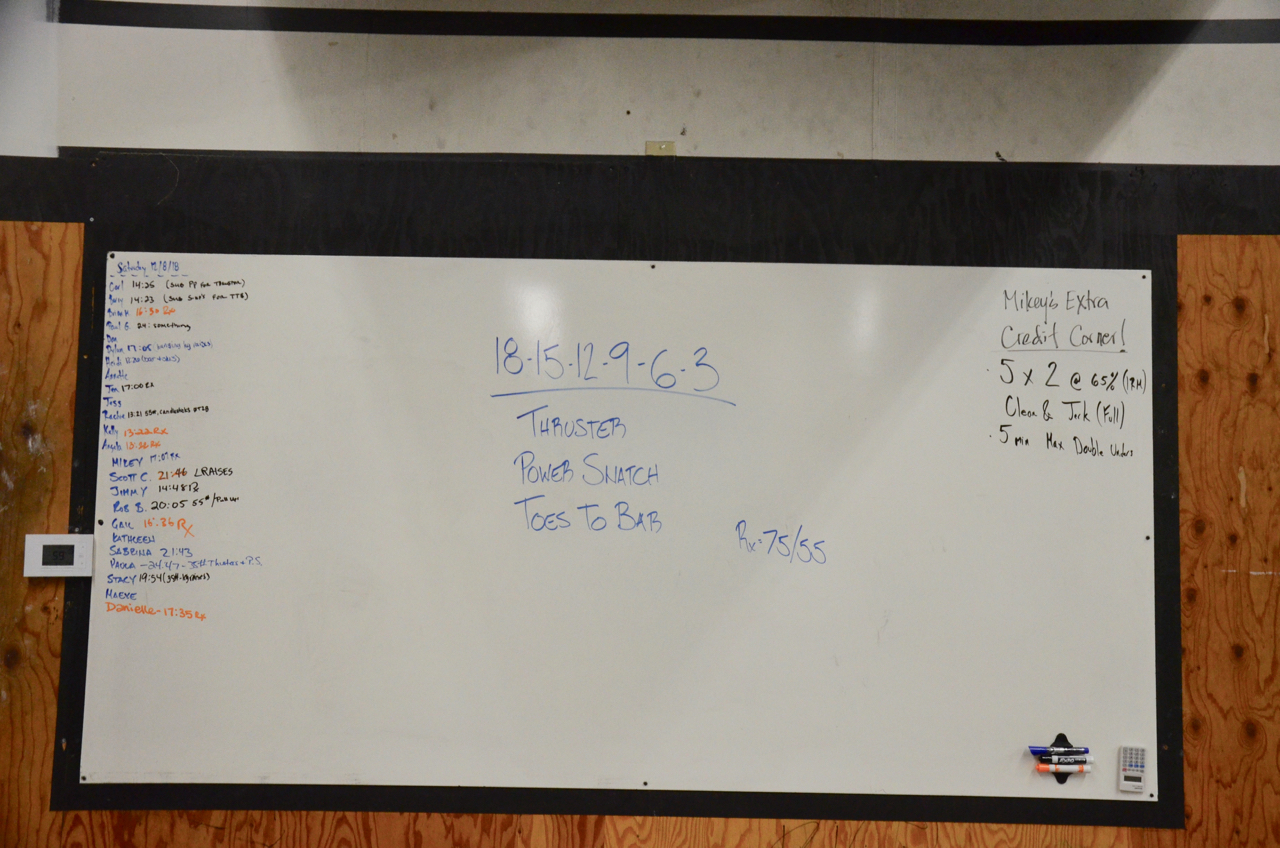 Saturday 12/8/18
Carl 14:25 (SUB PP FOR THRUSTER)
Gary 14:23 (SUB SITUP FOR TTB)
Brian K 16:30 Rx
Paul G 24: something
Don
Dylan 17:05
Heidi
Annette
Jen 17:00 Rx
Tess
13:21 55#,
Kelly 13:22 Rx
Angela Rx
MIKEY 17:07 Rx
SCOTT C. 21:46 L RAISES
JIMMY 14:48 Rx
ROB B. 20:05 55#/Pull up
GAIL 16:36 Rx
KATHLEEN
SABRINA 21:43
PAOLA - 24:47 - 35# Thrusters + P.S.
STACY 19:54
MAEVE
Danielle - 17:35 Rx
18-15-12-9-6-3
THRUSTER
POWER SNATCH
TOES TO BAR
Rx=75/55
Mikey's Extra
Credit Corner!
· 5 x 2 @ 65% (1RM)
Clean & Jerk (Full)
· 5 min Max Double Unders
EXPO